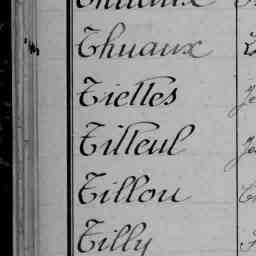 Thuaux
Tiettes
Tilleul
Tillou
Tilly